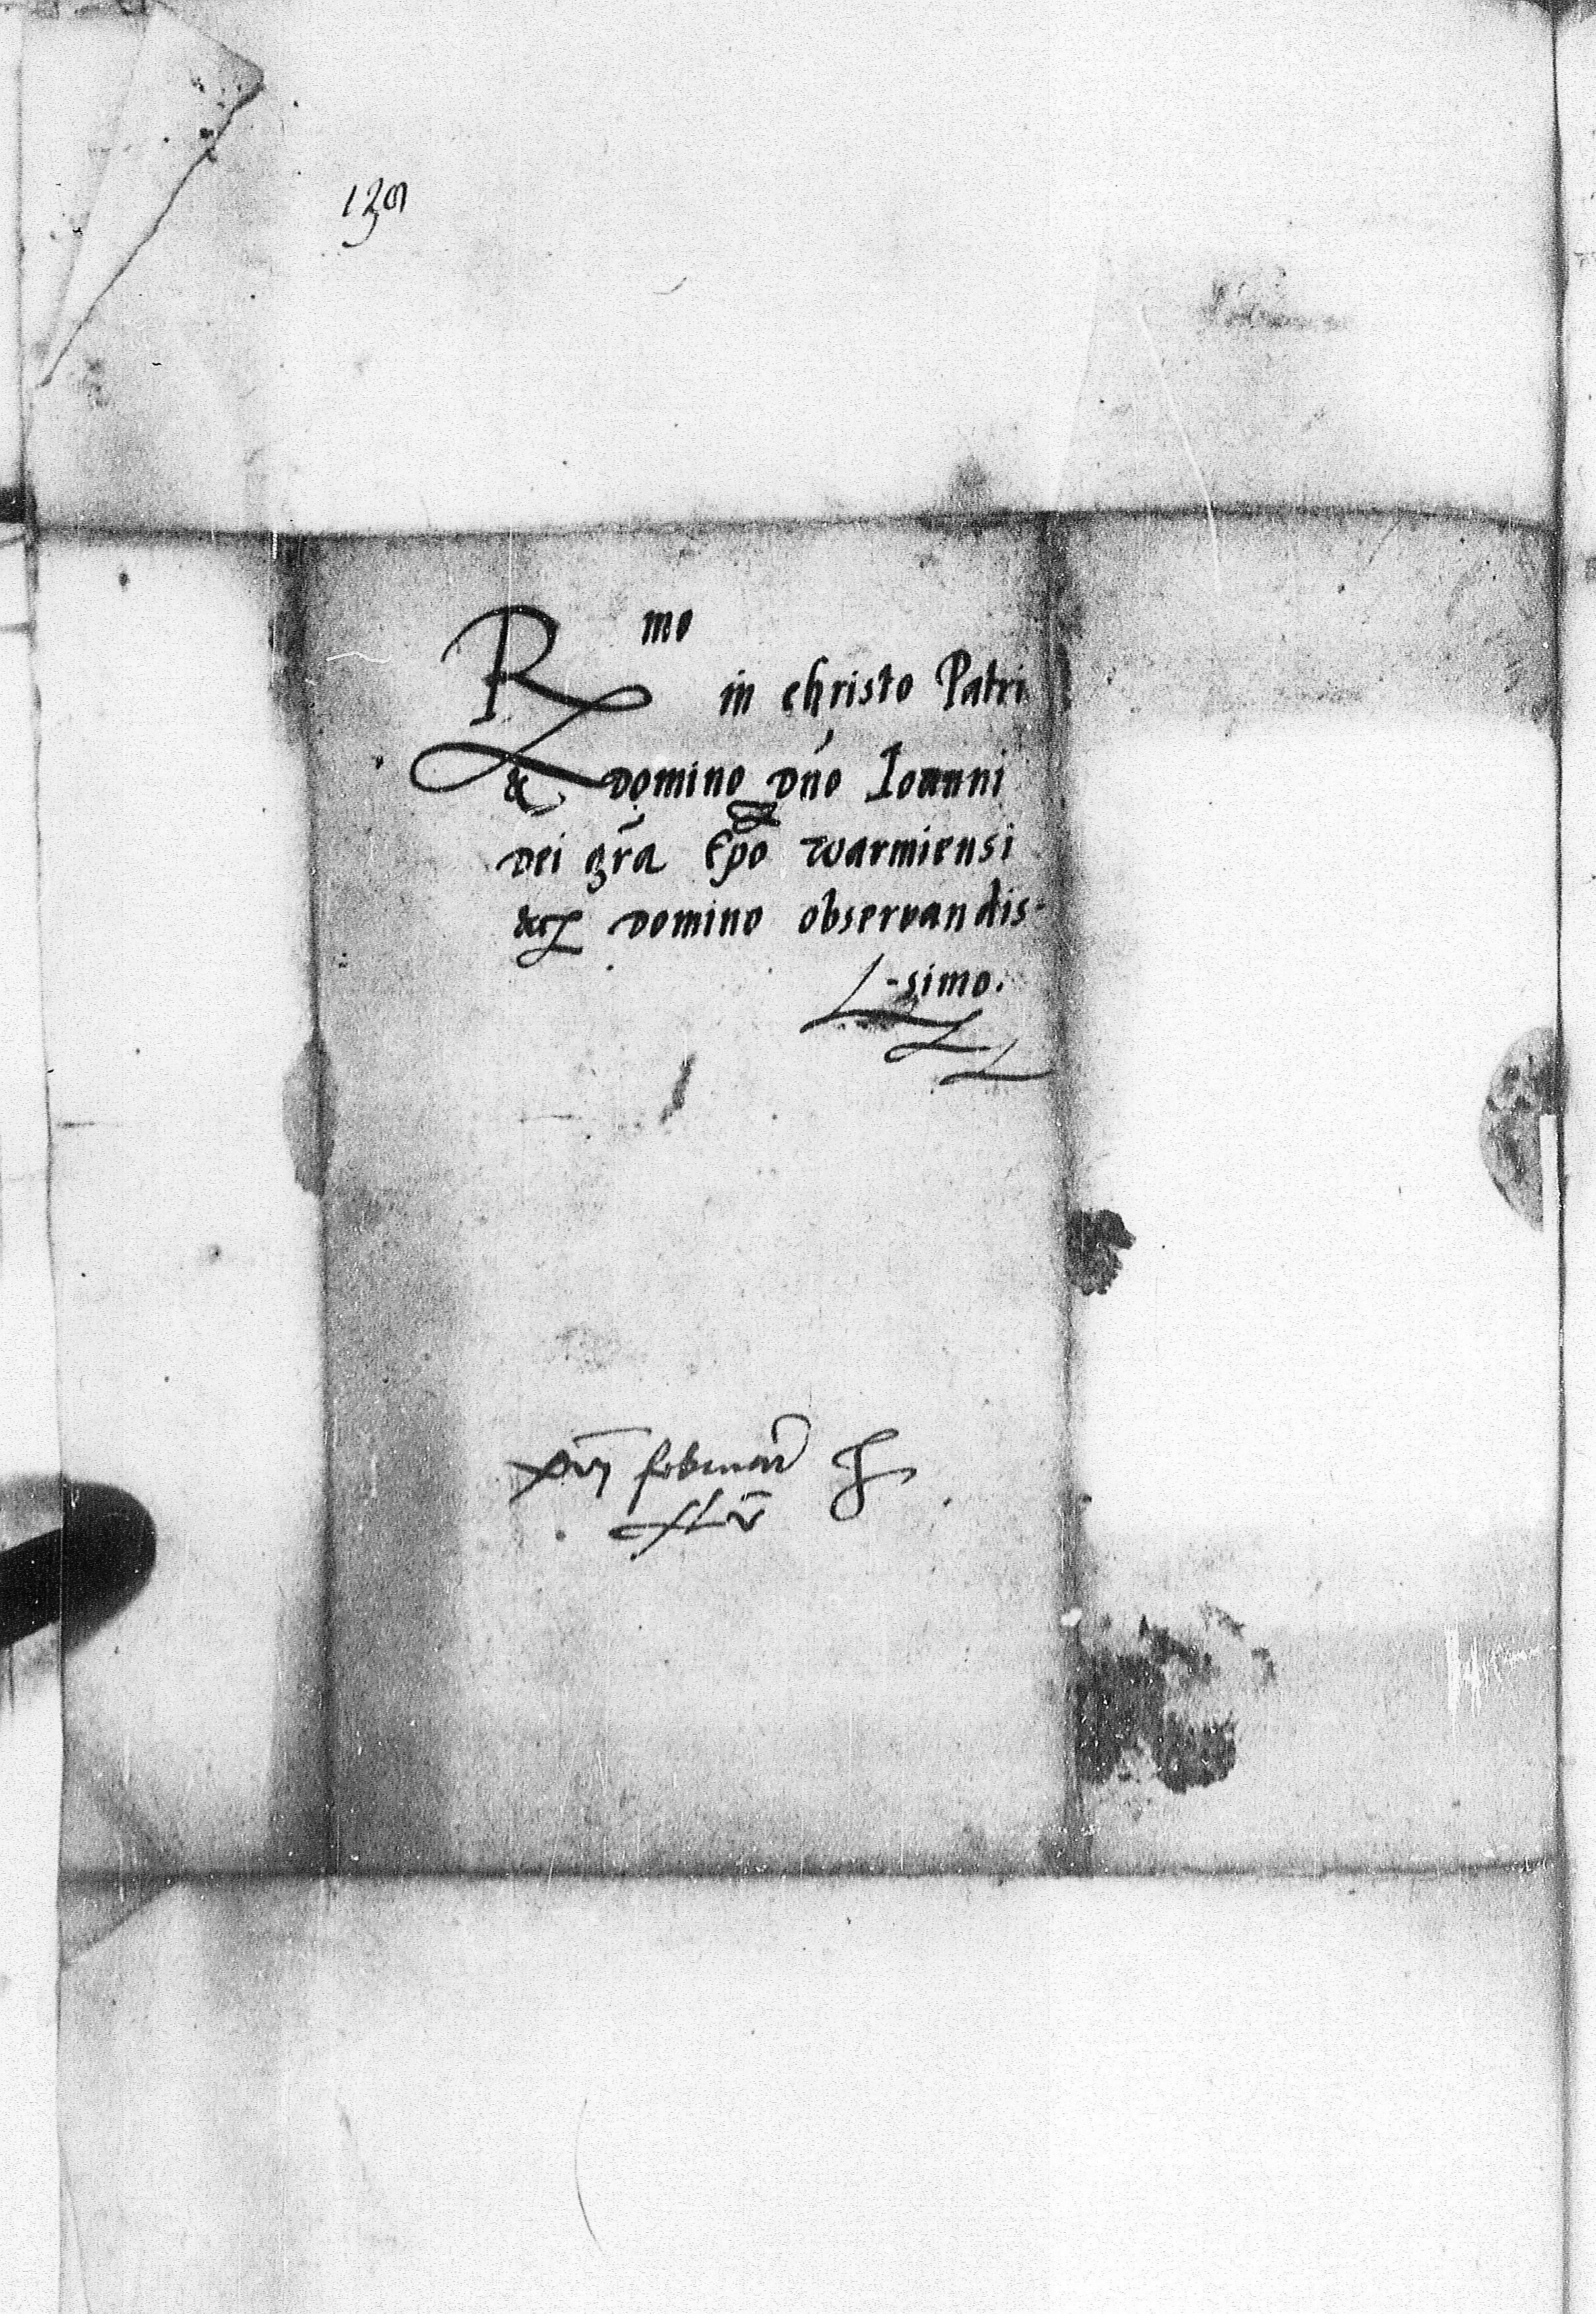 139
R mo
in christo Patri
& domino dno Ioanni
dei gra Epo warmiensi
&c domino observandis-
-simo.
xvi februarii
xlv